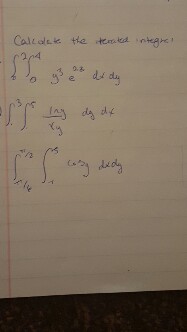 Calculate the iterated integral
∫∫ y³ e^{2x} dx dy
∫₁³ ∫₁⁵ ln y / xy dy dx
∫_{π/6}^{π/2} ∫_{-1}^{5} cos y dx dy